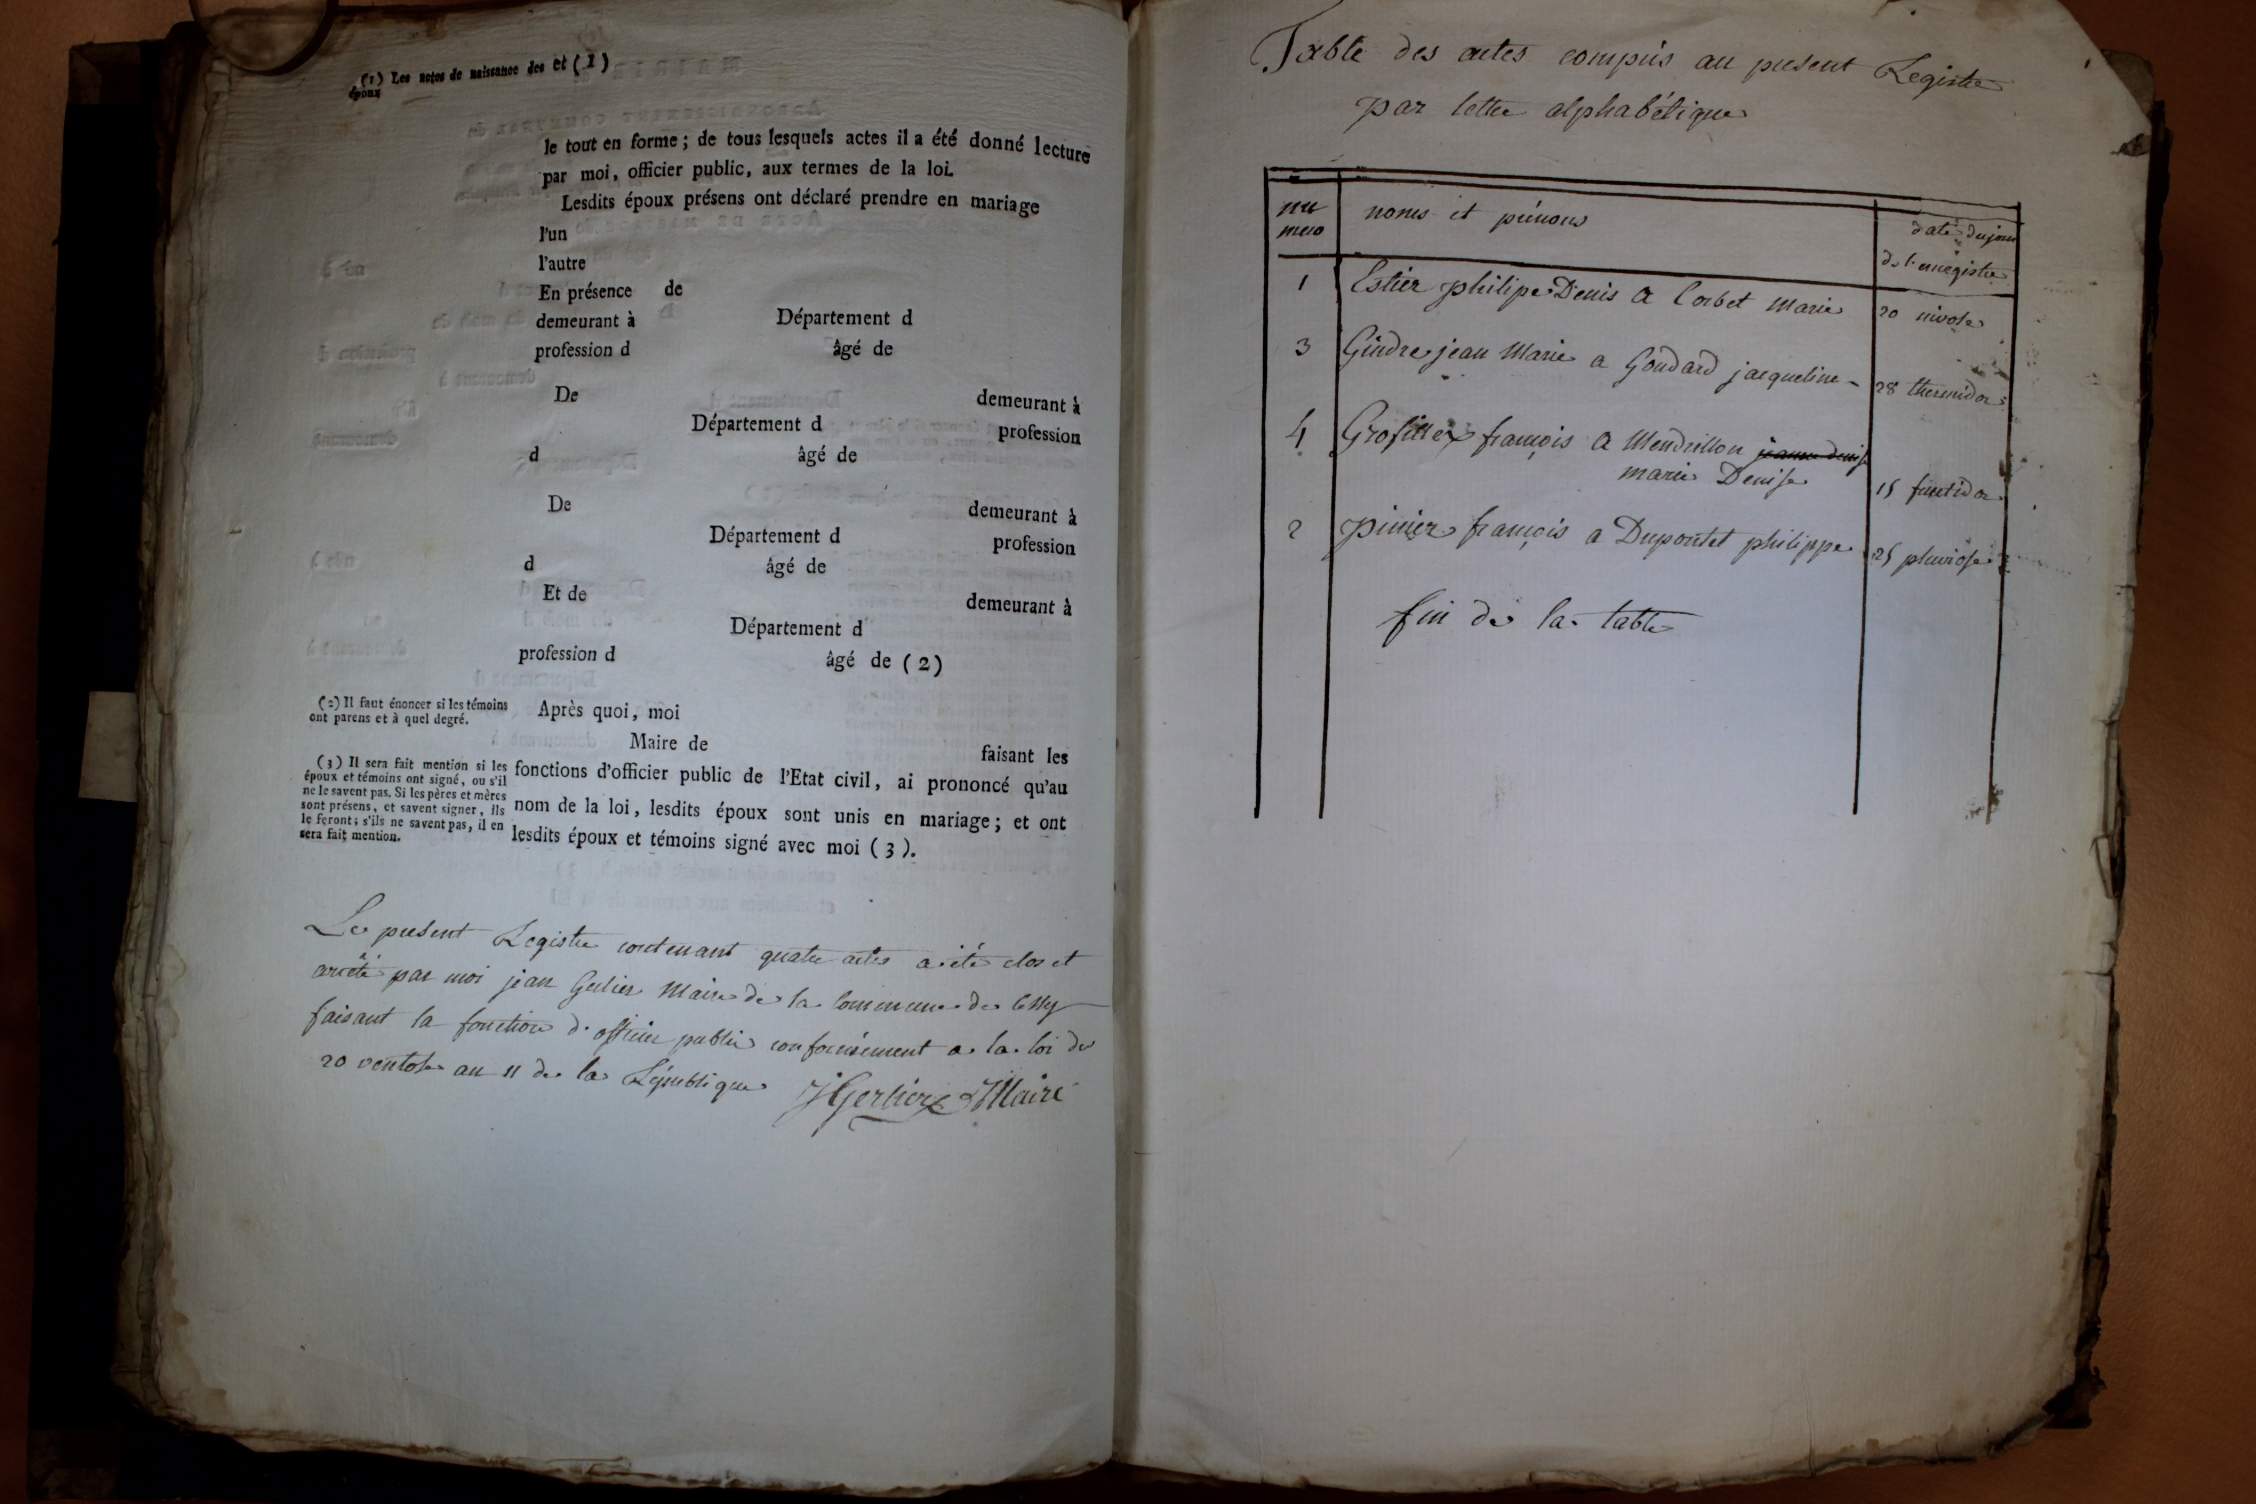 (1) Les actes de naissance des
époux
et (1)
le tout en forme ; de tous lesquels actes il a été donné lecture
par moi, officier public, aux termes de la loi.
Lesdits époux présens ont déclaré prendre en mariage
l'un
l'autre
En présence de
demeurant à Département d
profession d âgé de
De demeurant à
Département d profession
d âgé de
De demeurant à
Département d profession
d âgé de
Et de demeurant à
Département d
profession d âgé de (2)
(2) Il faut énoncer si les témoins
ont parens et à quel degré.
Après quoi, moi
Maire de faisant les
fonctions d'officier public de l'Etat civil, ai prononcé qu'au
nom de la loi, lesdits époux sont unis en mariage ; et ont
lesdits époux et témoins signé avec moi (3).
(3) Il sera fait mention si les
époux et témoins ont signé, ou s'il
ne le savent pas. Si les pères et mères
sont présens, et savent signer, ils
le feront ; s'ils ne savent pas, il en
sera fait mention.
Le present Registre contenant quatre actes a été clos et
arreté par moi jean Maire de la Commune de
faisant la fonction d'officier public conformément a la loi du
20 ventose an 11 de la République JGerlier Maire
Table des actes compris au present Registre
par lettre alphabétique
nu
mero
noms et prénoms
date du jour
de l'enregistre
1 Estier philipe Denis a Corbet Marie 20 nivose
3 Gindre jean Marie a Goudard jacqueline 28 thermidor
4 Grosfillex françois a Mendrillon jeanne denise
marie Denise 15 fructidor
2 pinier françois a Dupontet philippe 25 pluviose
fin de la table